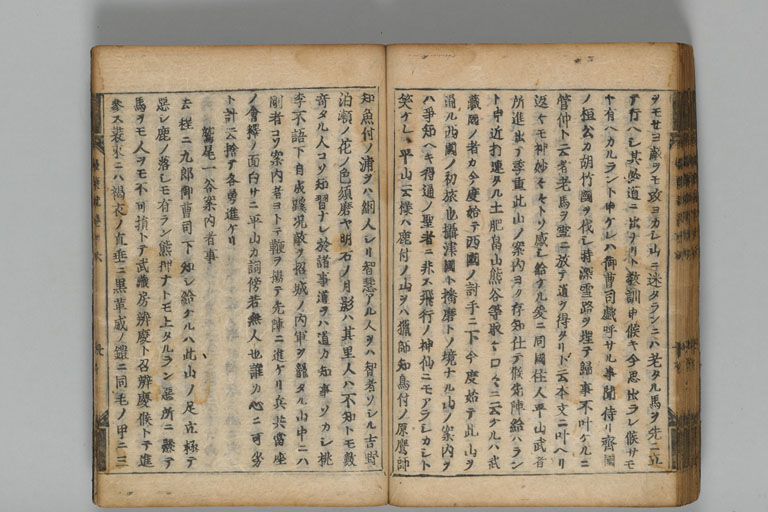 ヲモサヨ敵ヲモ攻ヨカシ山ニ迷タランニハ老タル馬ヲ先ニ立
テ行ヘシ其必道ニ出ナリト教訓申候キ今思出ラレ候サモ
ヤ有ヘカルラント申ケレハ御曹司戯呼サル事聞侍リ齊國
ノ桓公カ胡竹國ヲ伐シ時深雪路ヲ埋テ歸事不叶ケルニ
管仲ト云者老馬ヲ雪ニ放テ道ヲ得タリト云本文ニ叶ヘリ
返々モ神妙々々トソ感シ給ケル爰ニ同國住人平山武者
所進出テ季重此山ノ案内ヨク存知仕テ候先陣給ハラン
ト申近打連タル土肥畠山熊谷等取々口々ニ云ケルハ武
藏國ノ者カ今度始テ西國ノ討手ニ下今度始テ此山ヲ
通ル西國ノ初旅也攝津國ト播磨トノ境ナル山ノ案内ヲ
ハ爭知ヘキ得通ノ聖者ニ非ス飛行ノ神仙ニモアラシカシト
笑ケレハ平山云僕ハ鹿付ノ山ヲハ獵師知鳥付ノ原鷹師
知魚付ノ浦ヲハ網人シリ智慧アル人ヲハ智者ソシル吉野
泊瀬ノ花ノ色須磨ヤ明石ノ月影ハ其里人ハ不知トモ數
奇タル人コソ知習ナレ於諸事道ヲハ道カ知事ソカシ桃
李不語下自成蹊況敵ヲ招城ノ内軍ヲ籠タル山中ニハ
剛者コソ案内者ヨトテ鞭ヲ揚テ先陣ニ進ケリ兵共當座
ノ會釋ノ面白サニ平山カ詞傍若無人也誰カ心ニ可劣
ト計云捨テ各勇進ケリ
鷲尾一谷案内者事
去程ニ九郎御曹司下知シ給ケルハ此山ノ足立極テ
惡シ鹿ノ落シモ有ラン熊押ナトモ上タルラン惡所ニ懸テ
馬ヲモ人ヲモ不可損トテ武藏房辨慶ト召辨慶候トテ進
參ス裝束ニハ褐衣ノ直垂ニ黒革威ノ鎧ニ同毛ノ甲ニ三